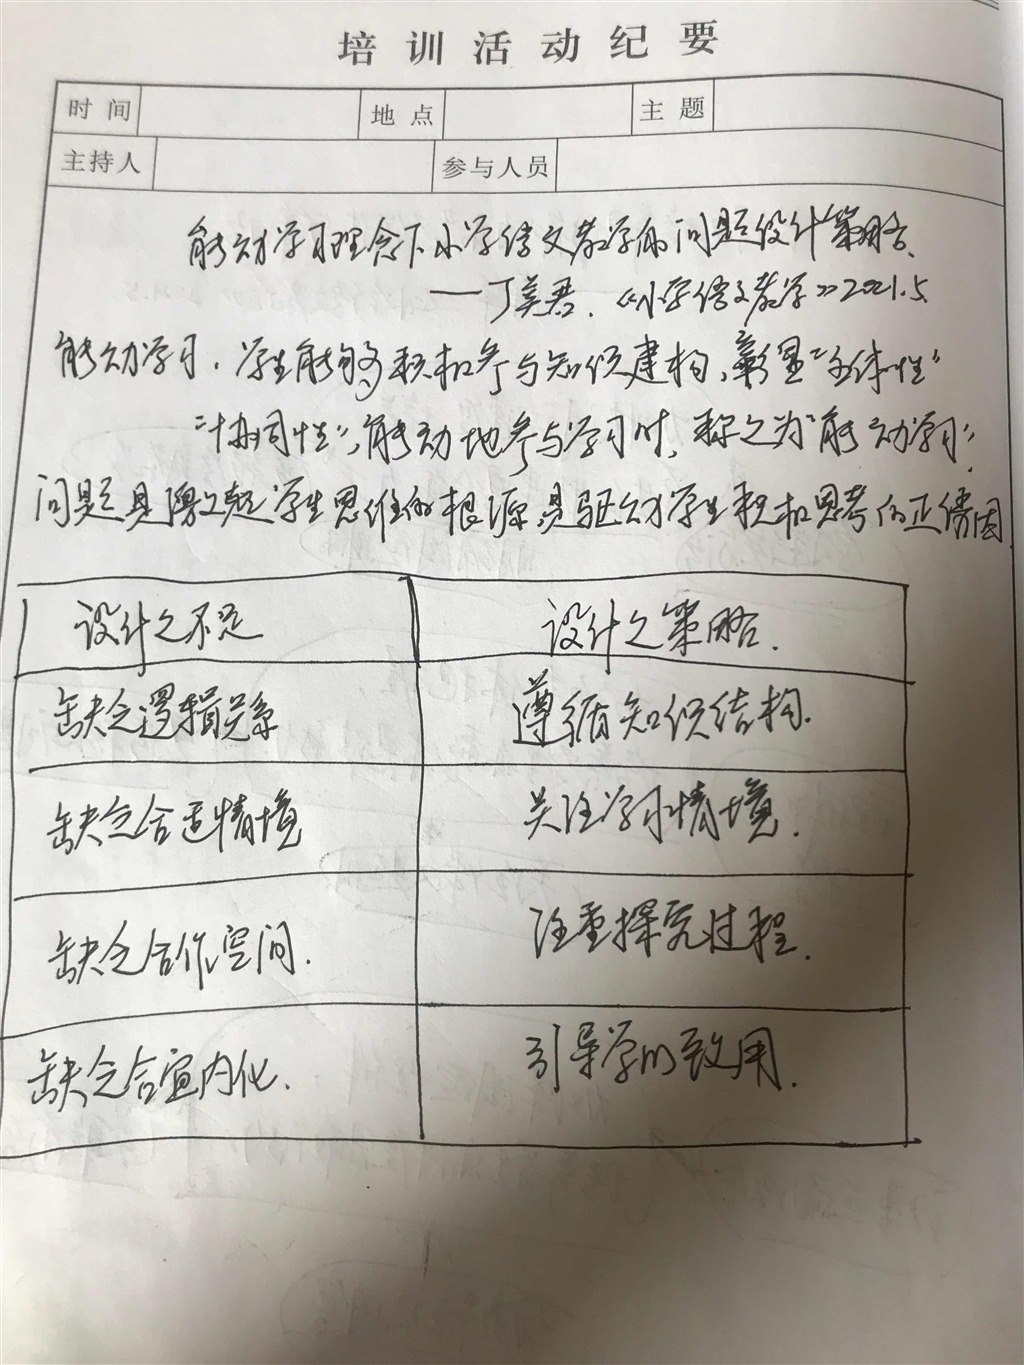 培训活动纪要
时间 地点 主题
主持人 参与人员
能动学习理念下小学语文教学的问题设计策略.
——丁美君.《小学语文教学》2021.5
能动学习.学生能够积极参与知识建构,彰显“主体性”
“协同性”,能动地参与学习时,称之为“能动学习”,
问题是激起学生思维的根源,是驱动学生积极思考的正诱因
设计之不足 设计之策略.
缺乏逻辑关系 遵循知识结构.
缺乏合适情境 关注学习情境.
缺乏合作空间. 注重探究过程.
缺乏合宜内化. 引导学以致用.